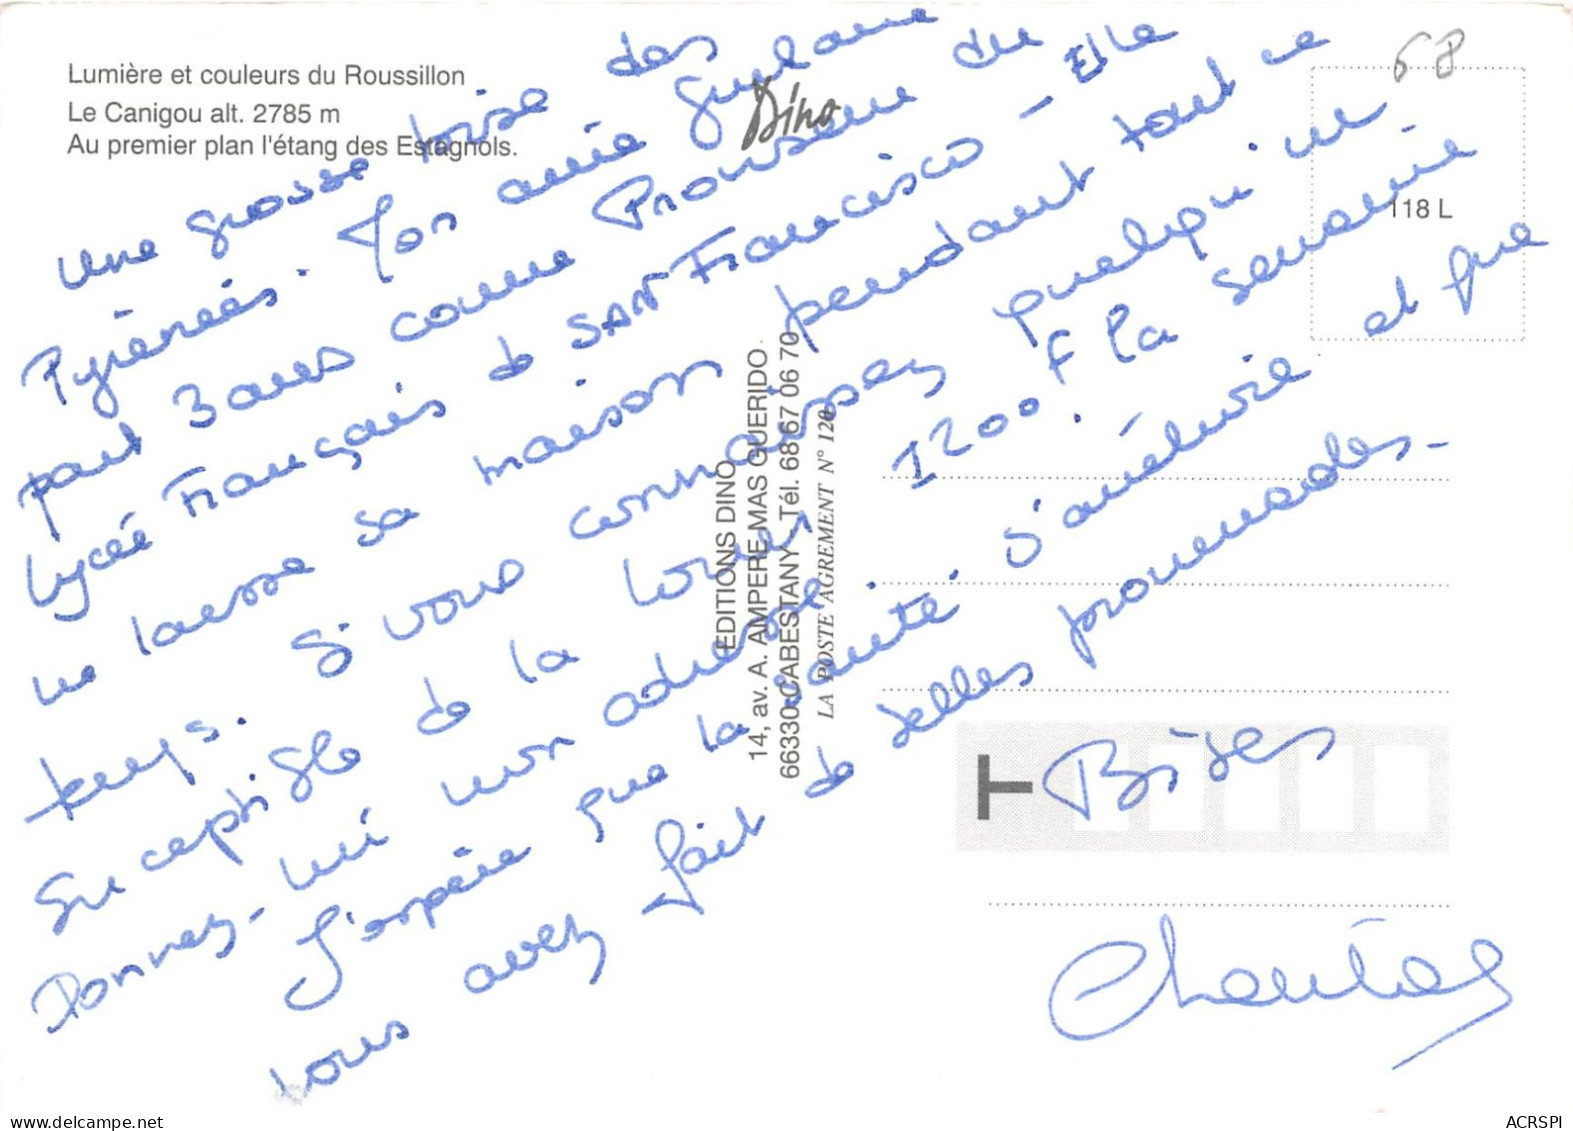 Lumière et couleurs du Roussillon
Le Canigou alt. 2785 m
Au premier plan l'étang des Estagnols.
Dino
68
118 L
une grosse bise des
Pyrénées. Mon amie Guylaine
part 3 ans comme Proviseur du
Lycée Français de SAN Francisco - Elle
me laisse sa maison pendant tout ce
temps. Si vous connaissez quelqu'un
susceptible de la louer 1200 F la semaine
Donnez-lui mon adresse. s'améliore et que
J'espère que la santé
vous avez fait de belles promenades.-
Bises
Chantal
EDITIONS DINO
14, av. A. AMPERE MAS GUERIDO
66330 CABESTANY - Tél. 68 67 06 70
LA POSTE AGREMENT N° 120
T
ACRSPI